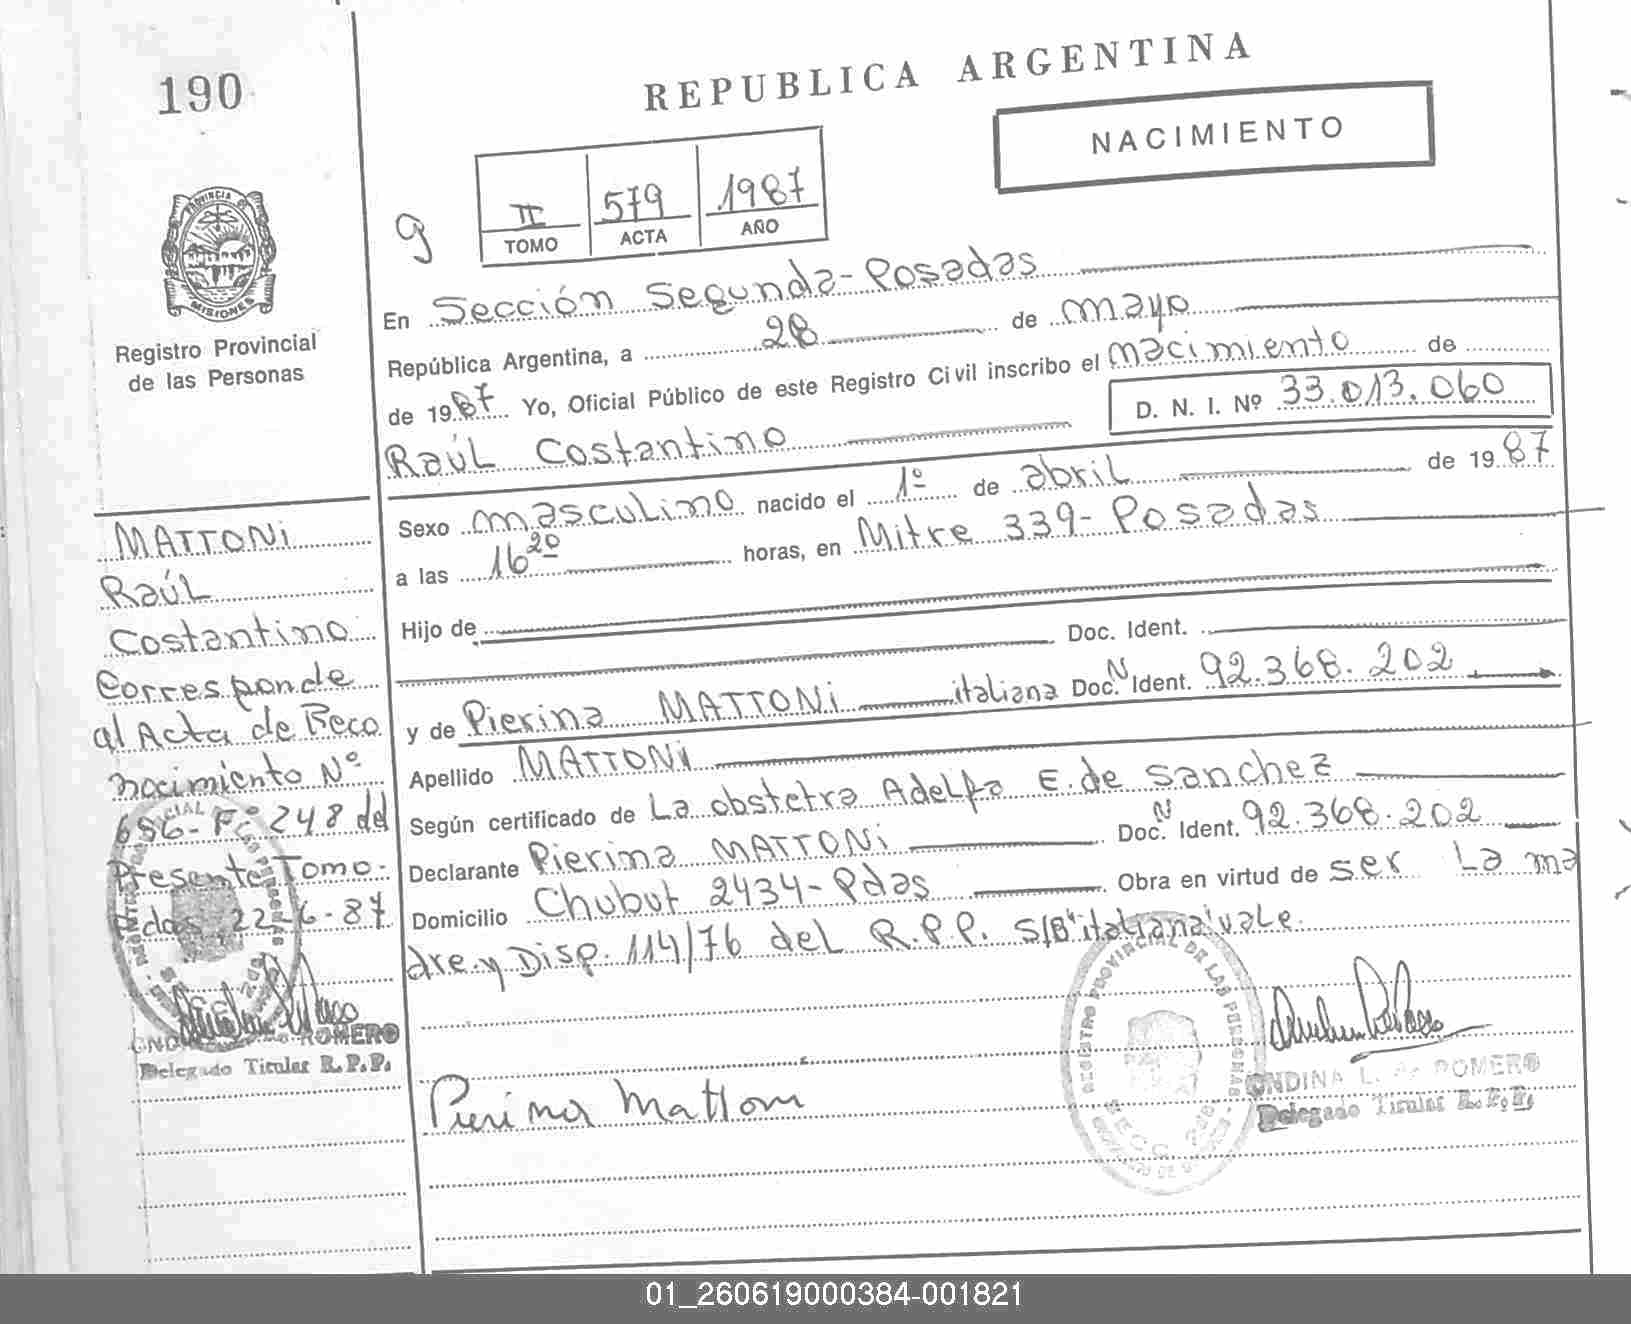 190
REPUBLICA ARGENTINA
NACIMIENTO
9
II 579 1987
TOMO ACTA AÑO
PROVINCIA DE
MISIONES
Registro Provincial
de las Personas
En Sección Segunda - Posadas
República Argentina, a 28 de mayo
de 1987 Yo, Oficial Público de este Registro Civil inscribo el nacimiento de
D. N. I. Nº 33.013.060
Raúl Costantino
Sexo masculino nacido el 1º de abril de 1987
a las 16 20 horas, en Mitre 339 - Posadas
Hijo de
Doc. Ident.
y de Pierina MATTONi italiana Doc. N Ident. 92.368.202
Apellido MATTONi
Según certificado de La obstetra Adelfa E. de Sanchez
Declarante Pierina MATTONi Doc. N Ident. 92.368.202
Domicilio Chubut 2434 - Pdas Obra en virtud de ser La ma
dre y Disp. 114/76 del R.P.P. S/B "italiana" vale.
Pierina Mattoni
REGISTRO PROVINCIAL DE LAS PERSONAS
SECC. 2da
ONDINA L. de ROMERO
Delegado Titular R.P.P.
MATTONi
Raúl
Costantino
Corresponde
al Acta de Reco
nocimiento Nº
686 - Fº 248 del
Presente Tomo.
Pdas 22-6-87
ROMERO
Delegado Titular R.P.P.
01_260619000384-001821